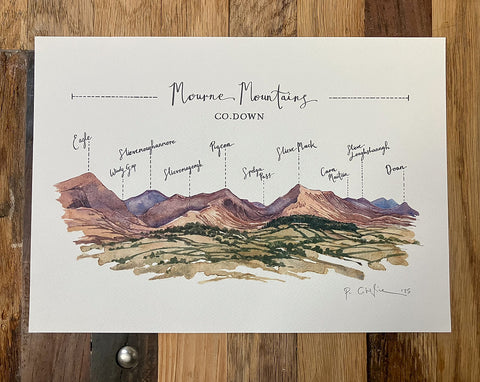 Mourne Mountains
CO.DOWN
Eagle
Windy Gap
Slievemoughanmore
Slievenagrogh
Pigeon
Spelga
Pass
Slieve Muck
Carn
Mountain
Slieve
Loughshannagh
Doan
'25